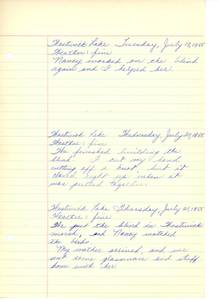 Thartwick Lake Tuesday, July 19, 1955
Weather: fine
Nancy worked on the blind
again and I helped her.
Lake Wednesday, July 20, 1955
Weather: fine
We finished building the
blind. I cut my hand
cutting off a knot, but it
right up when it
was together.
Lake Thursday, July 21, 1955
Weather: fine
We put the blind in
marsh, and Nancy watched
the birds.
My mother arrived, and we
some and stuff
home with her.